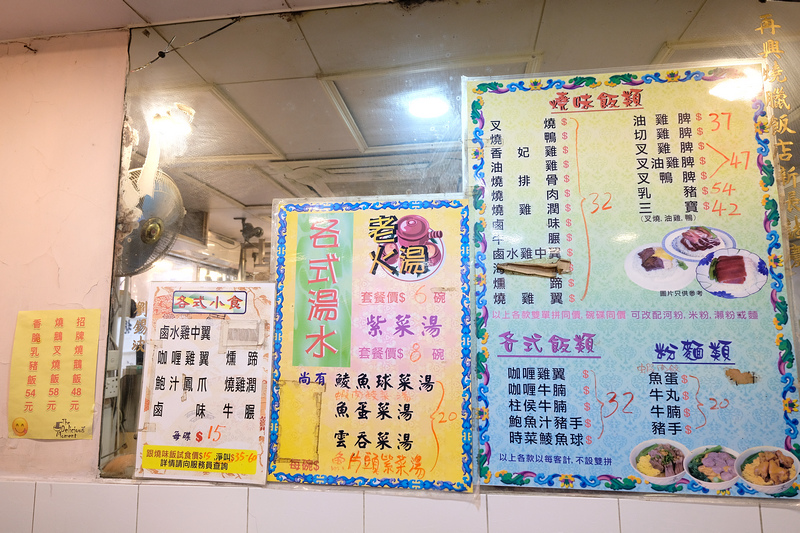 招牌燒鵝飯 48元
燒鵝叉燒飯 58元
香脆乳豬飯 54元
The Delicious Moment
各式小食
鹵水雞中翼
咖喱雞翼 燻蹄
鮑汁鳳爪 燒雞潤
鹵味 牛脤
每碟 $15
跟燒味飯試食價$15
詳情請向服務員查詢
各式湯水
老火湯
套餐價$6碗
紫菜湯
套餐價$8碗
尚有 鯪魚球菜湯
魚蛋菜湯
雲吞菜湯
魚片頭紫菜湯
20
每碗$
燒味飯類
叉燒$
燒鴨$
香妃雞$
油雞$
燒排骨$
燒肉$
燒雞潤$
鹵味$
牛脤$
鹵水雞中翼$
燻蹄$
燒雞翼$
32
油雞脾$37
切雞脾$
叉雞脾$
叉油雞脾$
叉鴨脾$
47
乳豬$54
三寶$42
(叉燒, 油雞, 鴨)
圖片只供參考
以上各款雙單拼同價, 碗碟同價 可改配河粉, 米粉, 瀨粉或麵
各式飯類
咖喱雞翼$
咖喱牛腩$
柱侯牛腩$
鮑魚汁豬手$
時菜鯪魚球$
32
粉麵類
魚蛋$
牛丸$
牛腩$
豬手$
20
以上各款以每客計, 不設雙拼
再興燒臘飯店